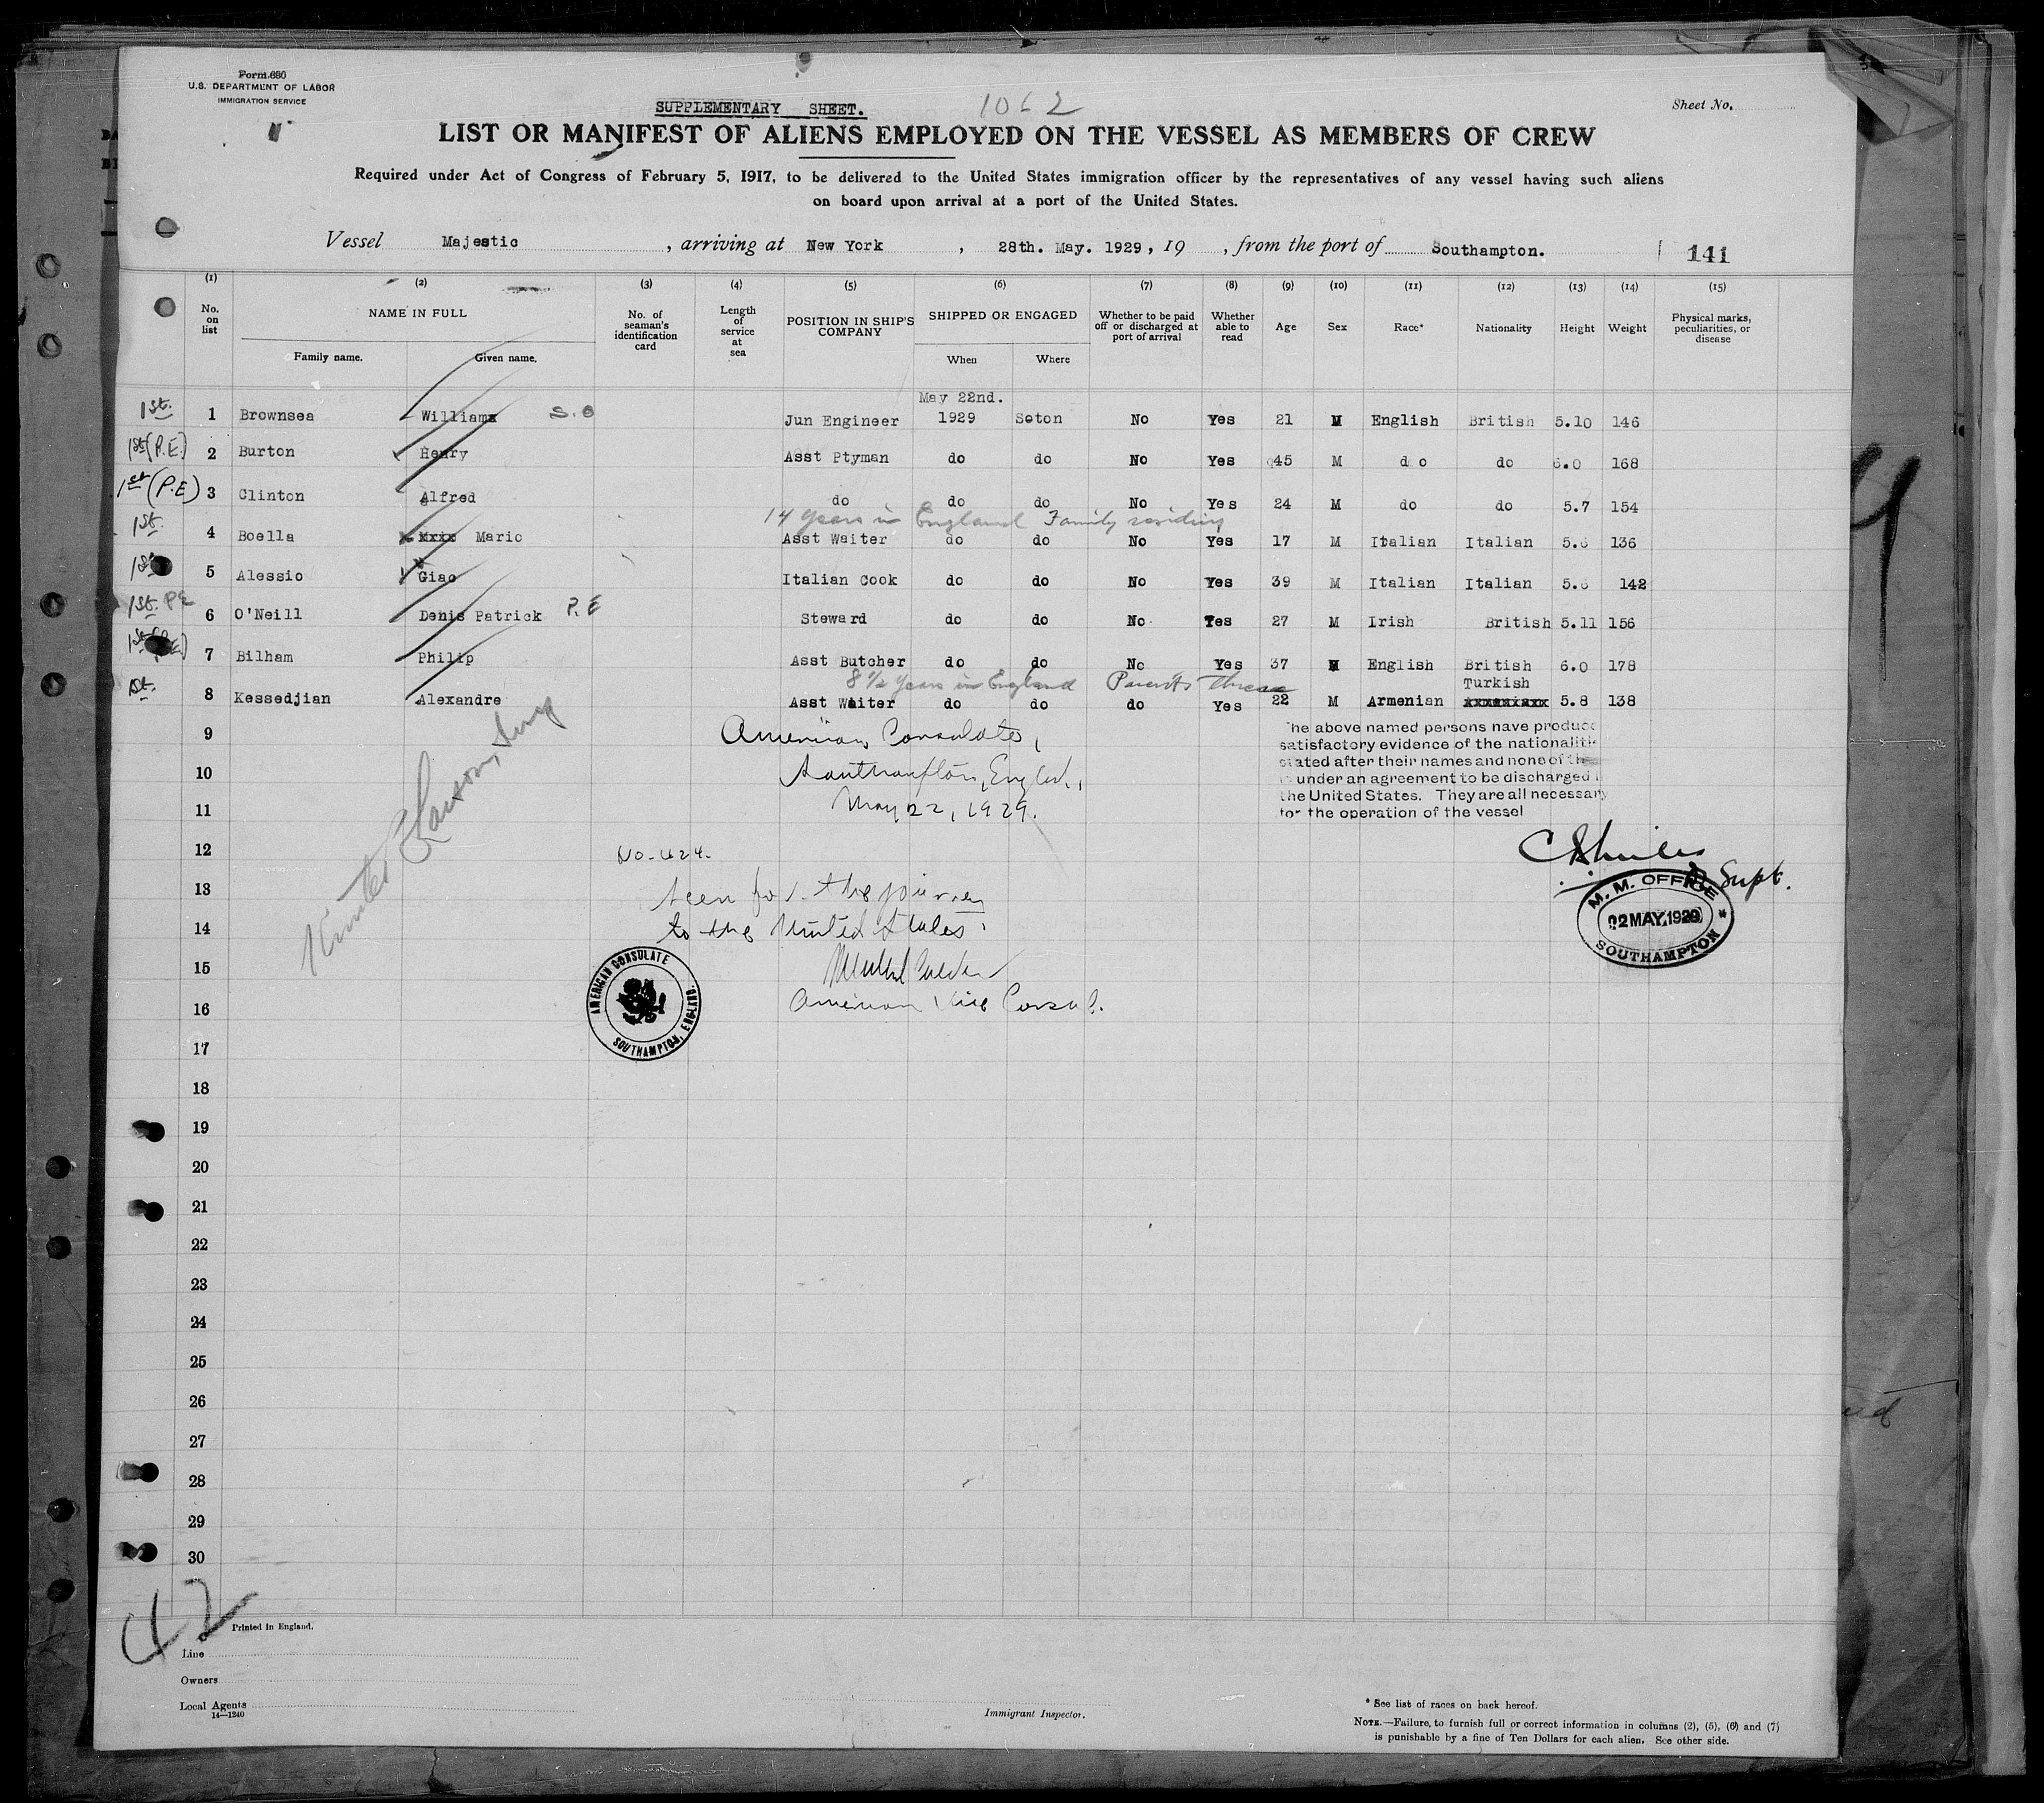 Form 680
U.S. DEPARTMENT OF LABOR
IMMIGRATION SERVICE
SUPPLEMENTARY SHEET.
1062
Sheet No.
LIST OR MANIFEST OF ALIENS EMPLOYED ON THE VESSEL AS MEMBERS OF CREW
Required under Act of Congress of February 5, 1917, to be delivered to the United States immigration officer by the representatives of any vessel having such aliens
on board upon arrival at a port of the United States.
Vessel Majestic, arriving at New York, 28th. May. 1929, 19 , from the port of Southampton.
141
(1) (2) (3) (4) (5) (6) (7) (8) (9) (10) (11) (12) (13) (14) (15)
No. on list
NAME IN FULL
Family name. Given name.
No. of seaman's identification card
Length of service at sea
POSITION IN SHIP'S COMPANY
SHIPPED OR ENGAGED
When Where
Whether to be paid off or discharged at port of arrival
Whether able to read
Age
Sex
Race*
Nationality
Height
Weight
Physical marks, peculiarities, or disease
May 22nd.
1st. 1 Brownsea William S.O Jun Engineer 1929 Soton No Yes 21 M English British 5.10 146
1st (P.E.) 2 Burton Henry Asst Ptyman do do No Yes 45 M do do 6.0 168
1st (P.E) 3 Clinton Alfred do do do No Yes 24 M do do 5.7 154
14 years in England Family residing
1st. 4 Boella Mario Asst Waiter do do No Yes 17 M Italian Italian 5.6 136
1st 5 Alessio Giac Italian Cook do do No Yes 39 M Italian Italian 5.6 142
1st. PE 6 O'Neill Denis Patrick P.E Steward do do No Yes 27 M Irish British 5.11 156
1st 7 Bilham Philip Asst Butcher do do No Yes 37 M English British 6.0 178
8 1/2 years in England Parents there
Turkish
1st. 8 Kessedjian Alexandre Asst Waiter do do do Yes 22 M Armenian 5.8 138
9
10
11
12
13
14
15
16
17
18
19
20
21
22
23
24
25
26
27
28
29
30
American Consulate,
Southampton, England,
May 22, 1929.
No. 424.
Seen for the journey
to the United States.
American Vice Consul.
AMERICAN CONSULATE
SOUTHAMPTON, ENGLAND.
The above named persons have produced
satisfactory evidence of the nationalities
stated after their names and none of them
is under an agreement to be discharged in
the United States. They are all necessary
for the operation of the vessel
Supt.
M. M. OFFICE
22 MAY. 1929
SOUTHAMPTON
42
Printed in England.
Line
Owners
Local Agents
14—1240
Immigrant Inspector.
* See list of races on back hereof.
NOTE.—Failure to furnish full or correct information in columns (2), (5), (6) and (7)
is punishable by a fine of Ten Dollars for each alien. See other side.